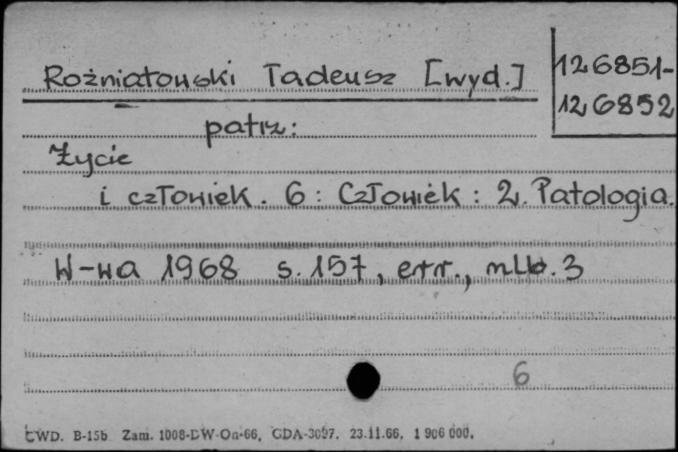 Rożniatowski Tadeusz [wyd.]
126851-
126852
patrz:
Życie
i człowiek. 6: Człowiek: 2. Patologia.
W-wa 1968 s. 157, err., nlb. 3
6
CWD. B-15b Zam. 1008-DW-On-66, GDA-3097. 23.11.66. 1 906 000.